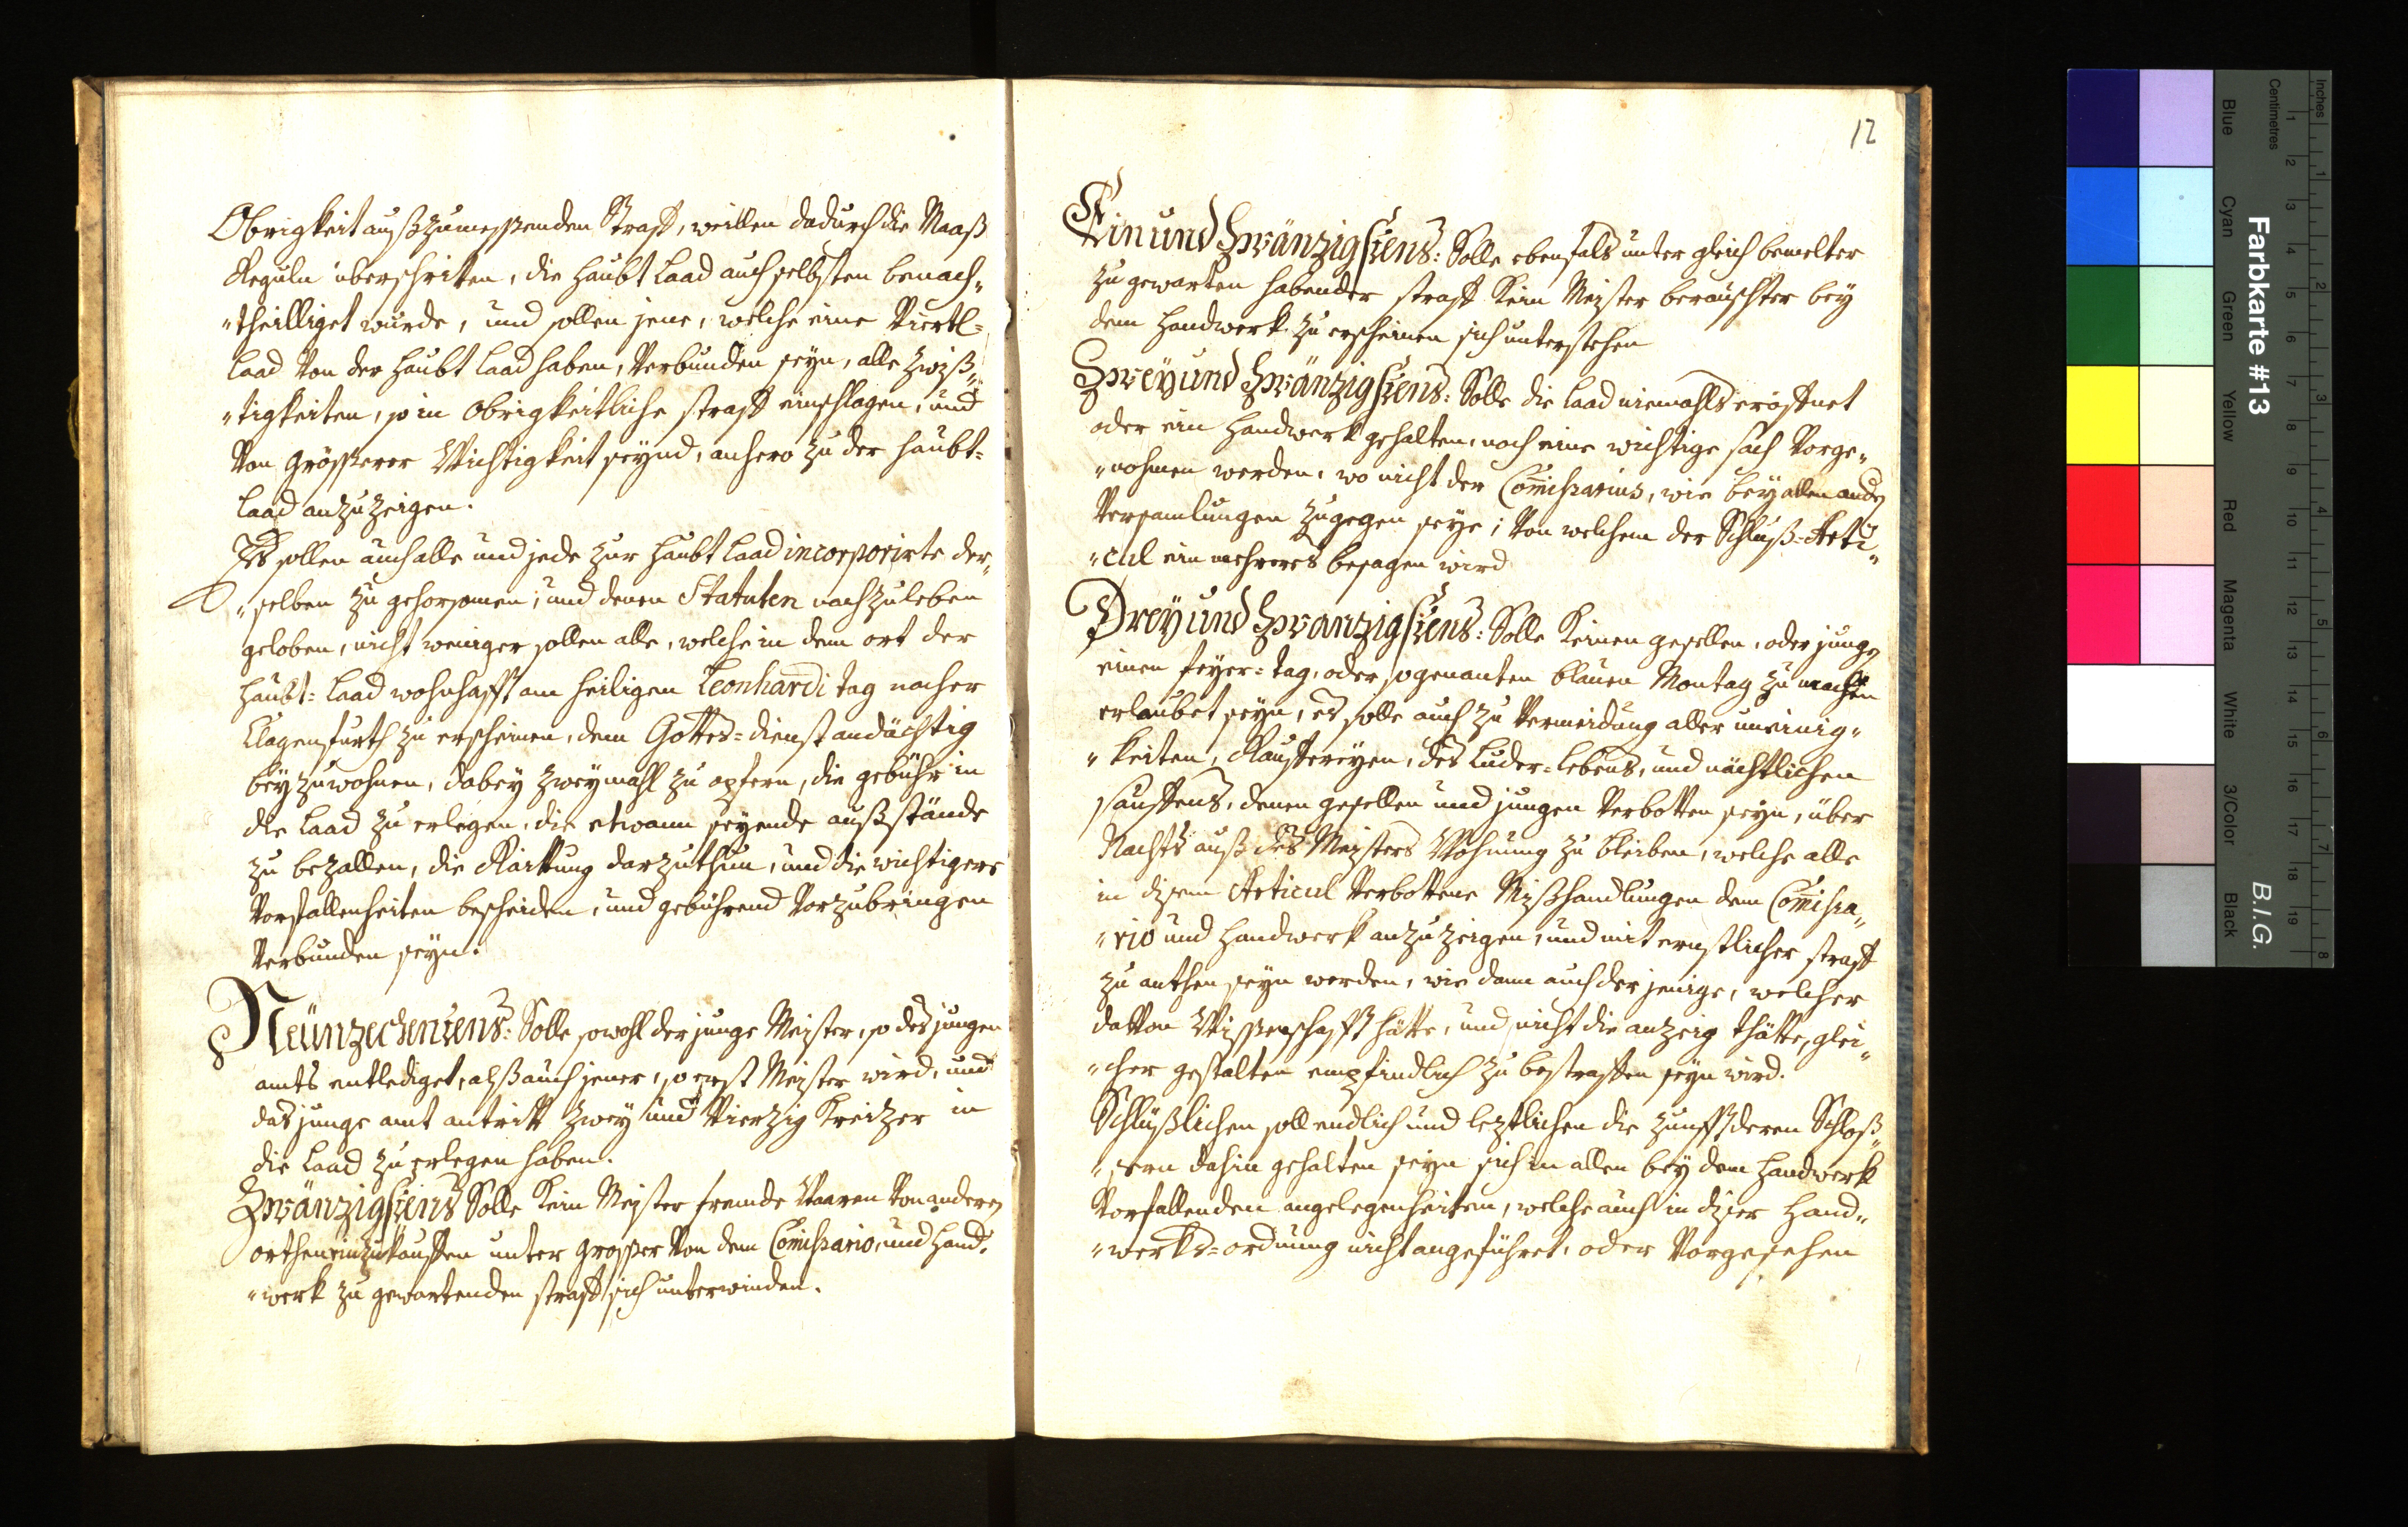 Obrigkeit außzumessenden Straff, weillen dadurch die Maaß
Reguln überschritten, die Haubt Laad auch selbsten benach„
„theilliget wurde, und sollen jene, welche eine Viertl=
Laad von der Haubt Laad haben, verbunden seyn, alle Zwiß„
„tigkeiten, so in Obrigkeitliche straff einschlagen, und
von grösserer Wichtigkeit seynd, anhero zu der Haubt=
Laad anzuzeigen.
Es sollen auch alle und jede zur Haubt Laad incorporirte der„
„selben zu gehorsamen, und denen Statuten nachzuleben
geloben, nicht weniger sollen alle, welche in dem ort der
Haubt=Laad wohnhafft am heiligen Leonhardi tag nacher
Clagenfurth zu erscheinen, dem Gottes=dienst andächtig
beyzuwohnen, dabey zweymahl zu opfern, die gebühr in
die Laad zu erlegen, die etwann seyende außstände
zu bezallen, die Raittung darzuthun, und die wichtigere
Vorfallenheiten bescheiden, und gebührend vorzubringen
verbunden seyn.
Neünzechentens: Solle sowohl der junge Meister, so des jungen
amts entlediget, alß auch jener, so erst Meister wird, und
das junge amt antritt zwey und vierzig Kreitzer in
die Laad zu erlegen haben.
Zwänzigstens Solle kein Meister fremde Waaren von anderen
orthen einzukauffen unter grosser von dem Comissario, und Hand„
„werk zu gewartenden straff sich unterwinden.
12
Ein und Zwänzigstens: Solle ebenfals unter gleich bemelter
zu gewarten habender straff kein Meister berauschter bey
dem Handwerk zu erscheinen sich unterstehen
Zwey und Zwänzigstens: Solle die Laad niemahls eröffnet
oder ein Handwerk gehalten, noch eine wichtige sach vorge„
„nohmen werden, wo nicht der Comissarius, wie bey allen anderen
Versamlungen zugegen seye; von welchem der Schluß=Arti„
„cul ein mehreres besagen wird
Drey und Zwanzigstens: Solle keinen gesellen, oder jungen
einen feyer=tag, oder sogenanten blauen Montag zu machen
erlaubet seyn, es solle auch zu Vermeidung aller uneinig„
„keiten, Rauffereyen, des Luder=Lebens, und nächtlichen
sauffens, denen gesellen und jungen verbotten seyn, über
Nachts auß des Meisters Wohnung zu bleiben, welche alle
in disem Articul verbottene Mißhandlungen dem Comissa„
„rio und Handwerk anzuzeigen, und mit ernstlicher straff
zu anthen seyn werden, wie dann auch der jenige, welcher
davon Wissenschafft hätte, und nicht die anzeig thätte, glei„
„cher gestalten empfindlich zu bestraffen seyn wird.
Schlüßlichen soll endlich und leztlichen die zunfft deren Schloß„
„sern dahin gehalten seyn sich in allen bey dem Handwerk
vorfallenden angelegenheiten, welche auch in diser Hand„
„werks=ordnung nicht angeführet, oder vorgesehen
Farbkarte #13
B.I.G.
Inches
Centimetres
Blue
Cyan
Green
Yellow
Red
Magenta
White
3/Color
Black
1 2 3 4 5 6 7 8 9 10 11 12 13 14 15 16 17 18 19
1 2 3 4 5 6 7 8